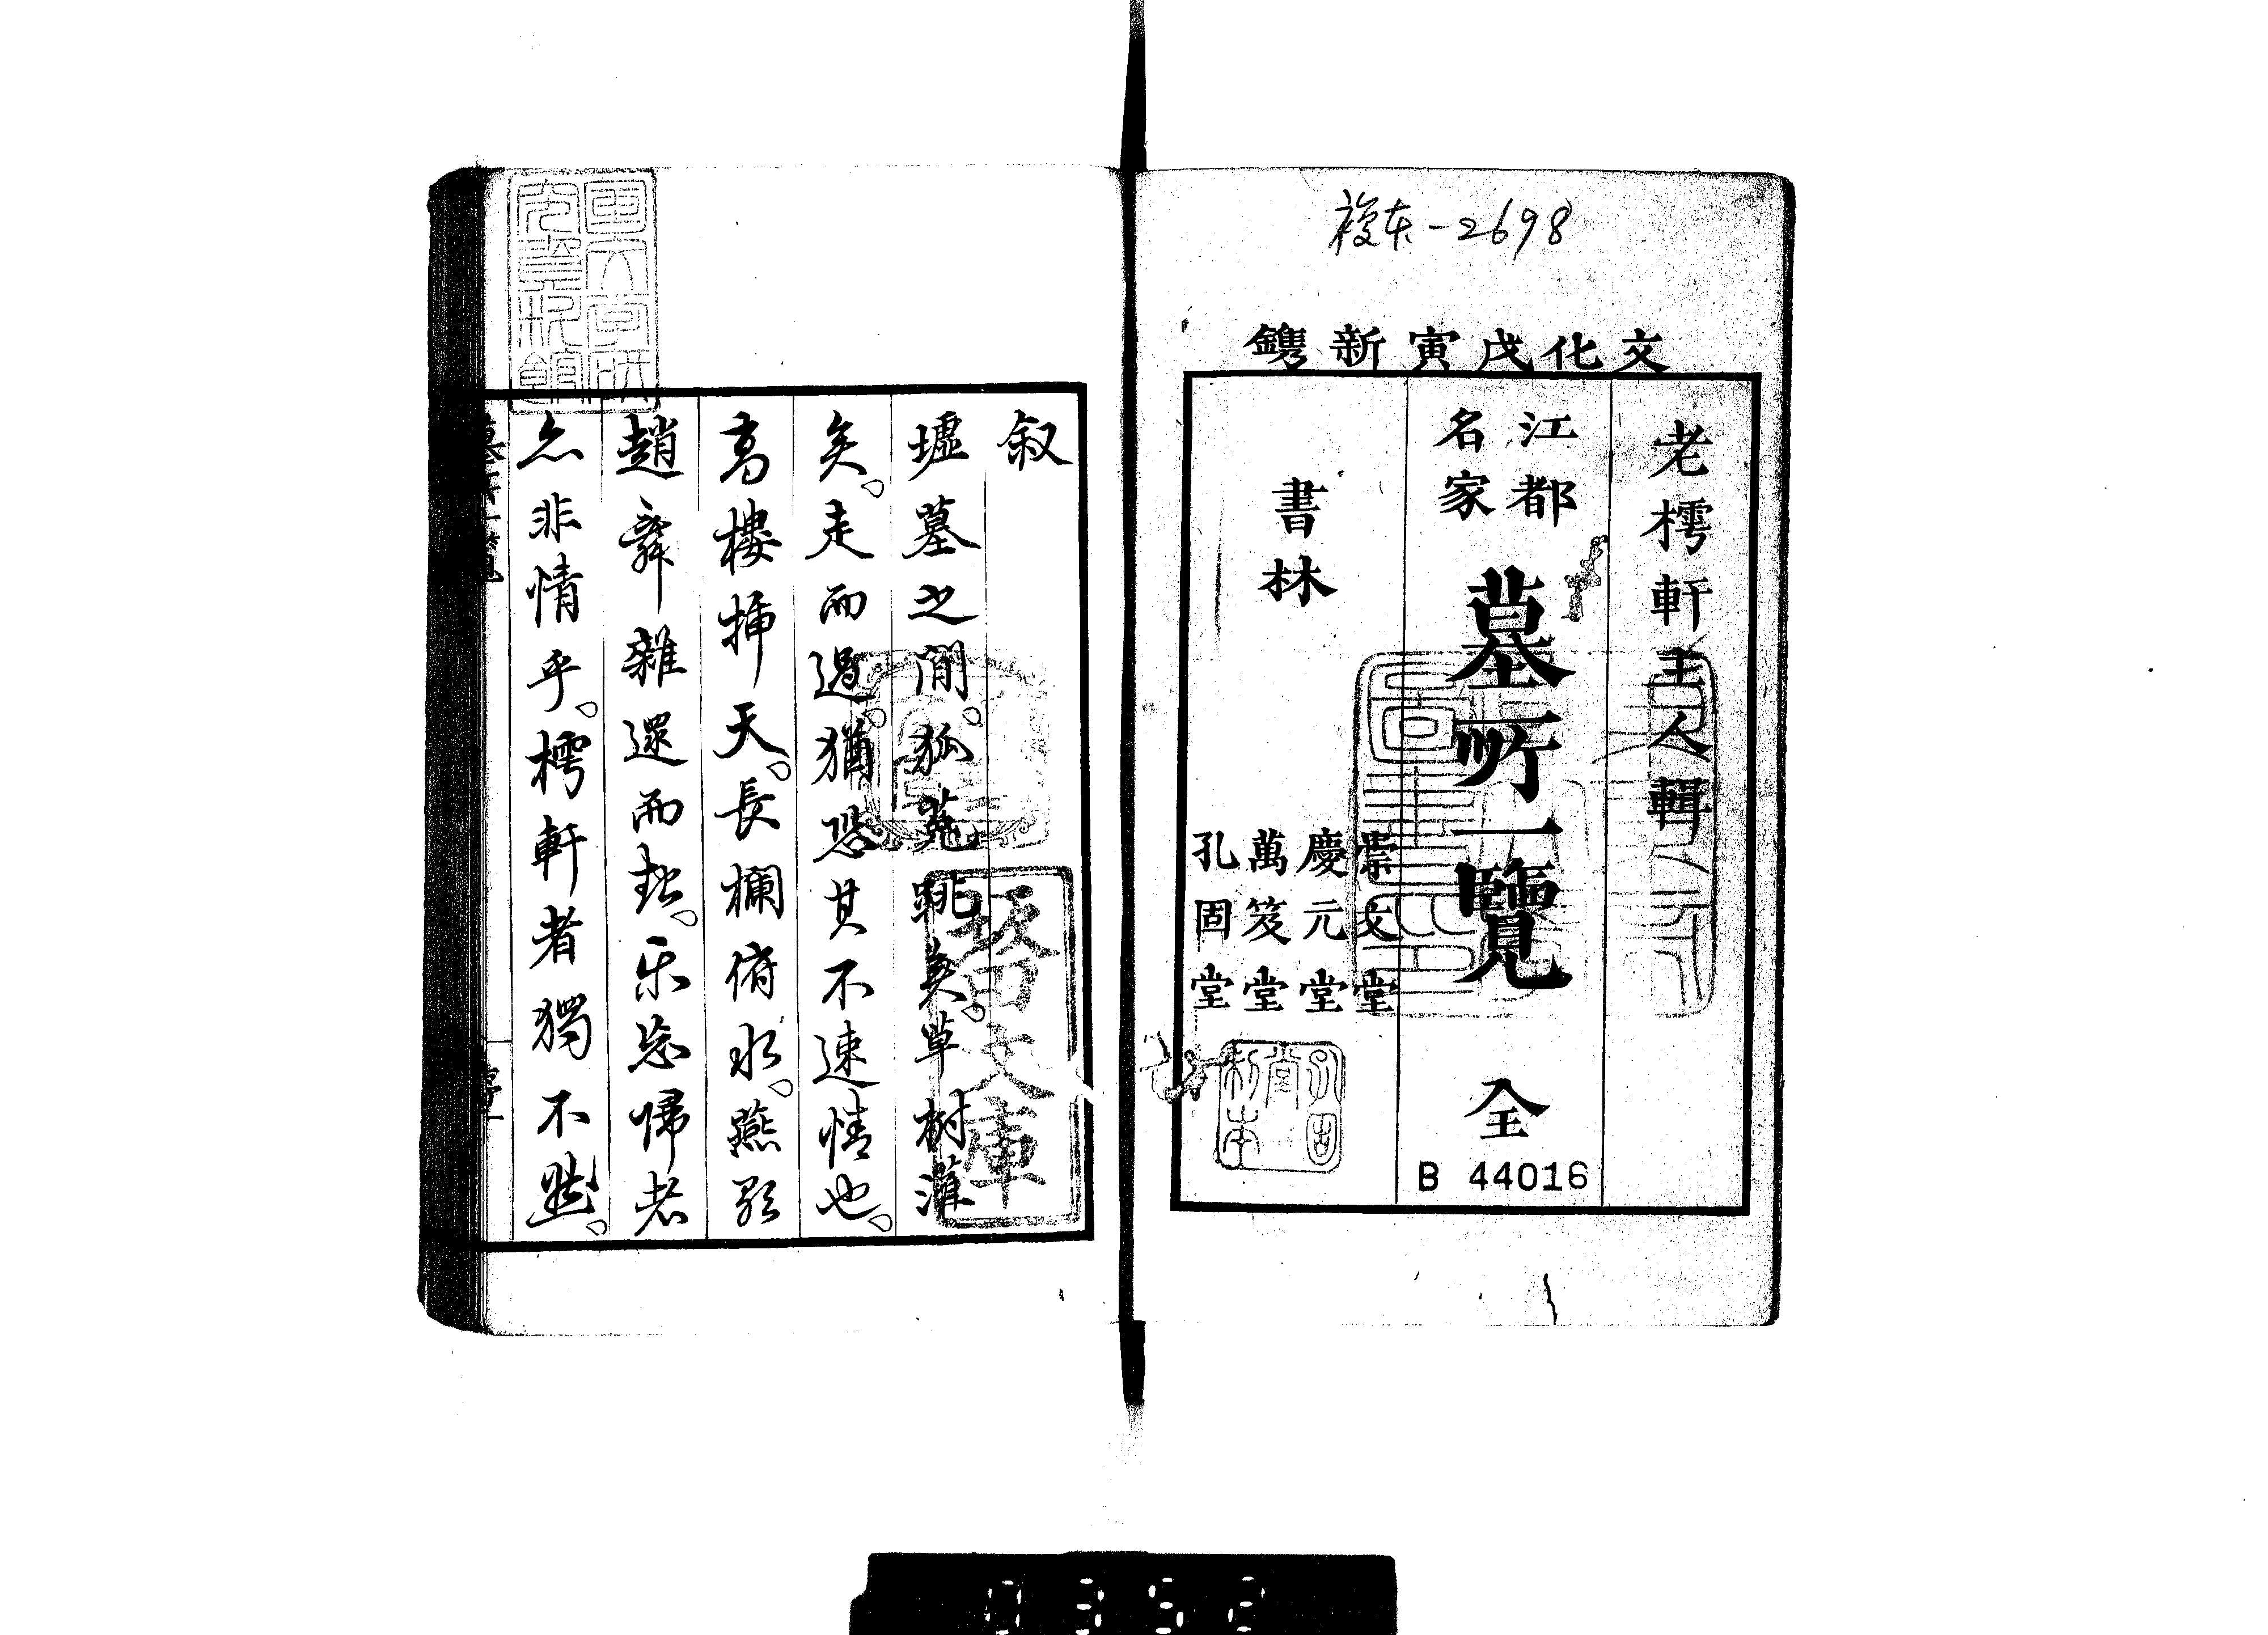 複本-2698
文化戊寅新鐫
老樗軒主人輯
江都
名家
墓所一覽 全
B 44016
書林
崇文堂
慶元堂
萬笈堂
孔固堂
叙
墟墓之間。狐菟跳矣。草樹滋
矣。走而過。猶恐其不速情也。
高樓挿天。長欄俯水。燕歌
趙舞雜還而起。乐忘帰者
亦非情乎。樗軒者獨不然。
坂田文庫